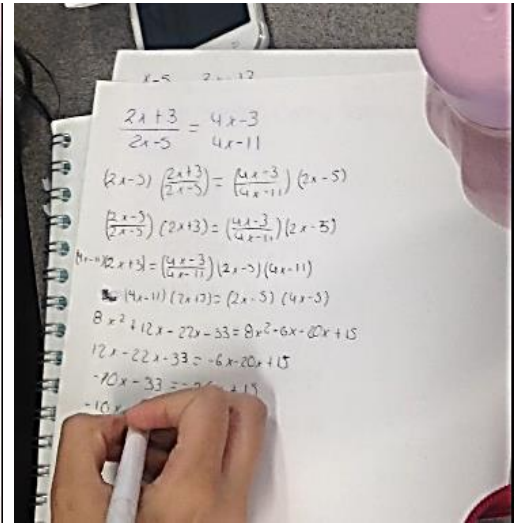 x-5 2x-12
2x+3/2x-5 = 4x-3/4x-11
(2x-5) (2x+3/2x-5) = (4x-3/4x-11) (2x-5)
(2x-5/2x-5) (2x+3) = (4x-3/4x-11) (2x-5)
(4x-11)(2x+3) = (4x-3/4x-11) (2x-5) (4x-11)
(4x-11) (2x+3) = (2x-5) (4x-3)
8x²+12x-22x-33 = 8x²-6x-20x+15
12x-22x-33 = -6x-20x+15
-10x-33 = -26x+15
-10x